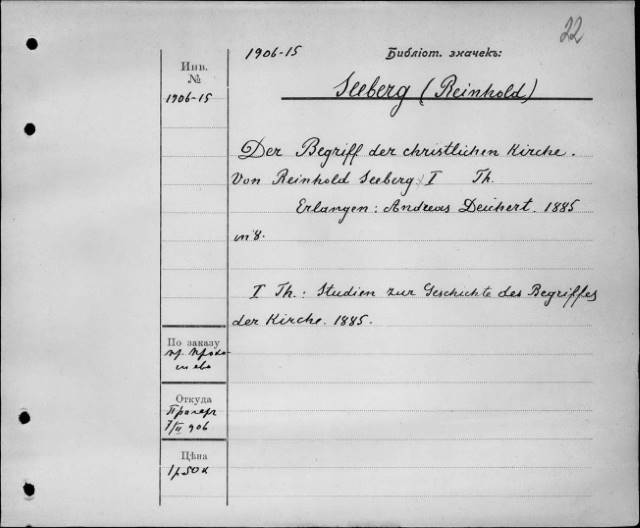 22
1906-15
Библіот. значекъ:
Инв.
№
1906-15
Seeberg (Reinhold)
Der Begriff der christlichen Kirche.
Von Reinhold Seeberg I Th.
Erlangen: Andreas Deichert. 1885
in 8.
I Th.: Studien zur Geschichte des Begriffes
der Kirche. 1885.
По заказу
пр.
Откуда
7/II 906
Цѣна
1 р 50 к